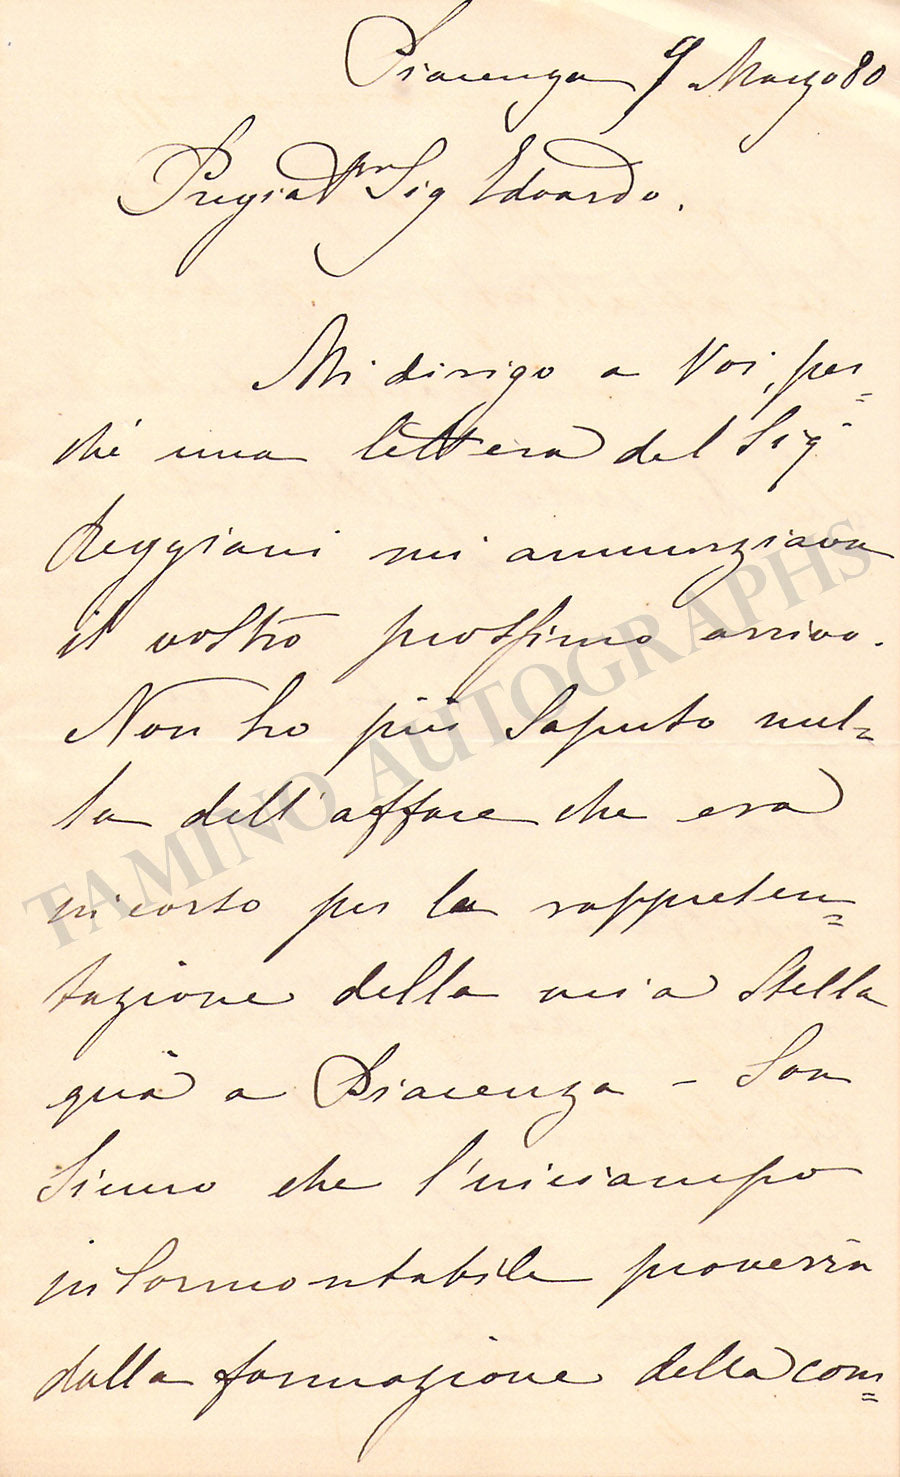 Piacenza 9 Marzo 80
Pregiatmo Sig Edoardo.
Mi dirigo a Voi, per=
ché una lettera del Sigr
Reggiani mi annunziava
il vostro prossimo arrivo.
Non ho più saputo nul=
la dell'affare che era
in corso per la rappresen=
tazione della mia Stella
quà a Piacenza – Son
sicuro che l'inciampo
insormontabile proverrà
dalla formazione della com=
TAMINO AUTOGRAPHS